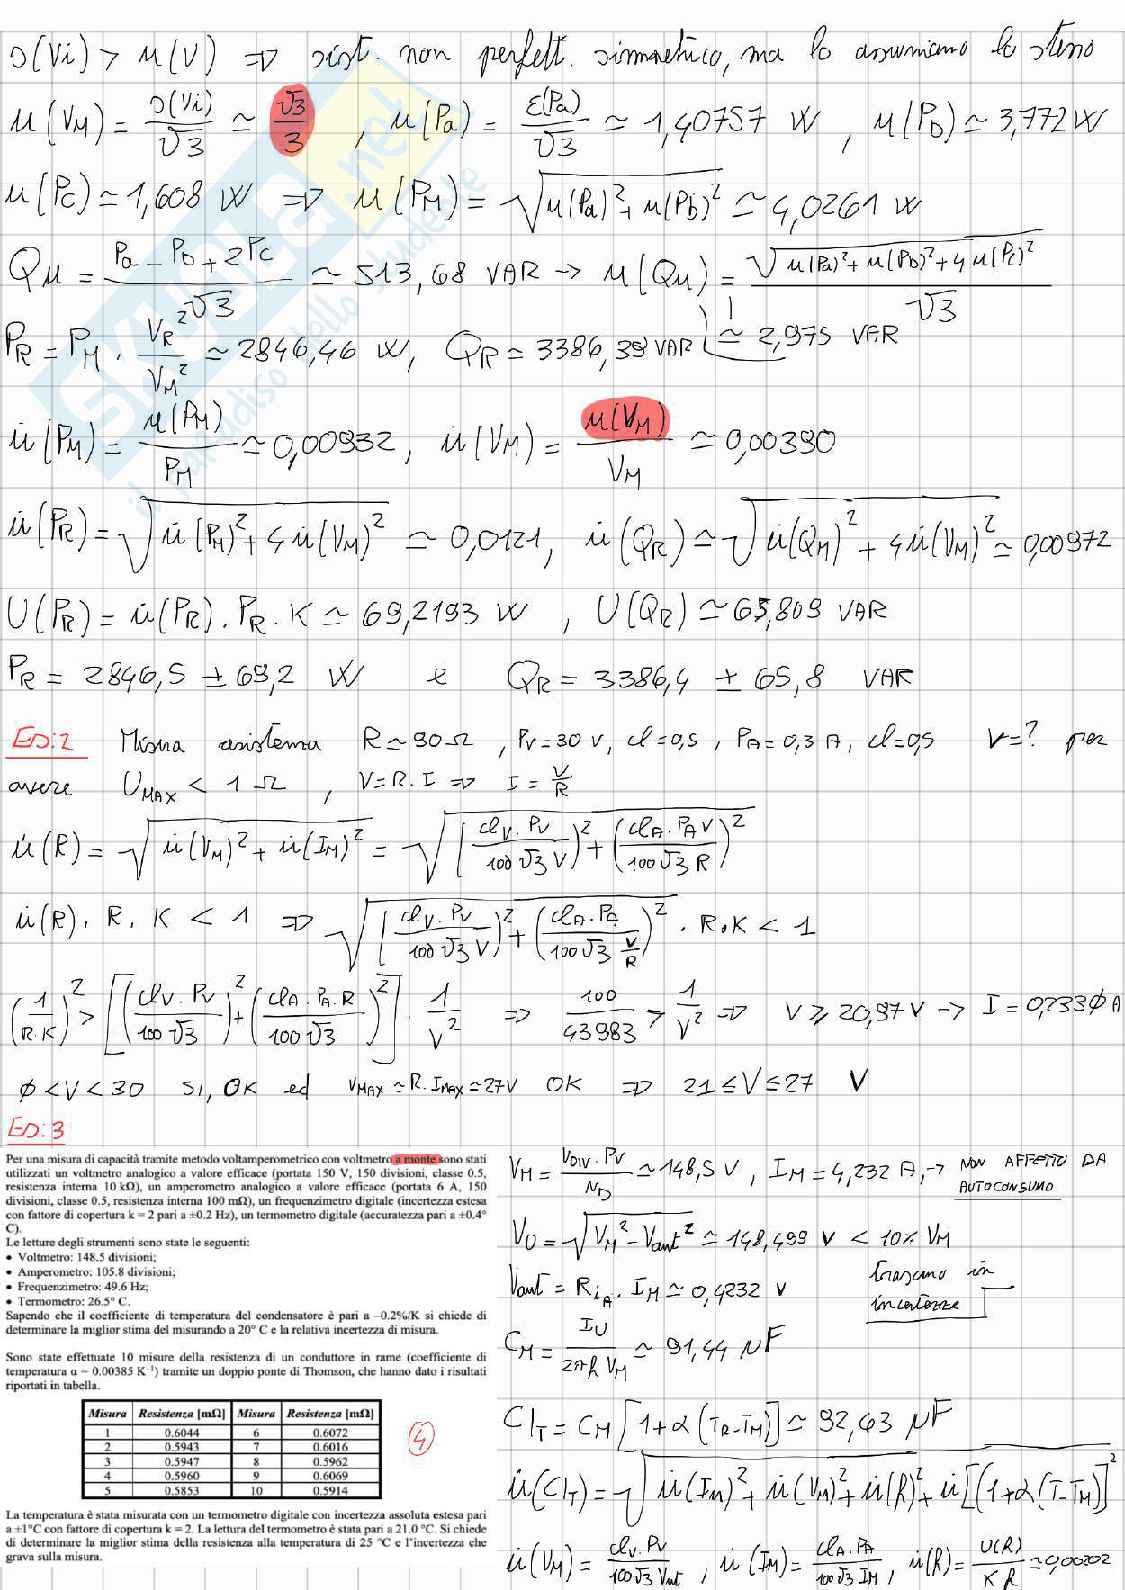 s(Vi) > u(V) ⇒ sist. non perfett. simmetrico, ma lo assumiamo lo stesso
u(V_M) = s(Vi)/√3 ≃ √3/3 , u(Pa) = ε(Pa)/√3 ≃ 1,40757 W , u(Pb) ≃ 3,772 W
u(Pc) ≃ 1,608 W ⇒ u(P_M) = √(u(Pa)² + u(Pb)²) ≃ 4,0261 W
Q_M = (Pa - Pb + 2Pc)/(2√3) ≃ 513,68 VAR → u(Q_M) = √(u(Pa)² + u(Pb)² + 4u(Pc)²)/(√3)
≃ 2,975 VAR
P_R = P_M · V_R²/V_M² ≃ 2846,46 W, Q_R ≃ 3386,39 VAR
u̇(P_M) = u(P_M)/P_M ≃ 0,00932, u̇(V_M) = u(V_M)/V_M ≃ 0,00390
u̇(P_R) = √(u̇(P_M)² + 4u̇(V_M)²) ≃ 0,0121, u̇(Q_R) ≃ √(u̇(Q_M)² + 4u̇(V_M)²) ≃ 0,00972
U(P_R) = u̇(P_R) · P_R · K ≃ 69,2193 W , U(Q_R) ≃ 65,809 VAR
P_R = 2846,5 ± 69,2 W e Q_R = 3386,4 ± 65,8 VAR
Es:2 Misura resistenza R ≃ 90 Ω , Pv = 30 V, cl = 0,5 , P_A = 0,3 A, cl = 0,5 V = ? per
avere U_MAX < 1 Ω , V = R · I ⇒ I = V/R
u̇(R) = √(u̇(V_M)² + u̇(I_M)²) = √((cl_V · Pv/(100√3 V))² + (cl_A · P_A V/(100√3 R))²)
u̇(R) · R · K < 1 ⇒ √((cl_V · Pv/(100√3 V))² + (cl_A · P_A/(100√3 V/R))²) · R · K < 1
(1/(R·K))² > [(cl_V · Pv/(100√3))² + (cl_A · P_A · R/(100√3))²] · 1/V² ⇒ 100/43983 > 1/V² ⇒ V ≥ 20,97 V → I = 0,2330 A
0 < V < 30 SI, OK ed V_MAX ≃ R · I_MAX = 27 V OK ⇒ 21 ≤ V ≤ 27 V
Es:3
Per una misura di capacità tramite metodo voltamperometrico con voltmetro a monte sono stati
utilizzati un voltmetro analogico a valore efficace (portata 150 V, 150 divisioni, classe 0.5,
resistenza interna 10 kΩ), un amperometro analogico a valore efficace (portata 6 A, 150
divisioni, classe 0.5, resistenza interna 100 mΩ), un frequenzimetro digitale (incertezza estesa
con fattore di copertura k = 2 pari a ±0.2 Hz), un termometro digitale (accuratezza pari a ±0.4°
C).
Le letture degli strumenti sono state le seguenti:
• Voltmetro: 148.5 divisioni;
• Amperometro: 105.8 divisioni;
• Frequenzimetro: 49.6 Hz;
• Termometro: 26.5° C.
Sapendo che il coefficiente di temperatura del condensatore è pari a –0.2%/K si chiede di
determinare la miglior stima del misurando a 20° C e la relativa incertezza di misura.
Sono state effettuate 10 misure della resistenza di un conduttore in rame (coefficiente di
temperatura α = 0.00385 K⁻¹) tramite un doppio ponte di Thomson, che hanno dato i risultati
riportati in tabella.
Misura Resistenza [mΩ] Misura Resistenza [mΩ]
1 0.6044 6 0.6072
2 0.5943 7 0.6016
3 0.5947 8 0.5962
4 0.5960 9 0.6069
5 0.5853 10 0.5914
4
La temperatura è stata misurata con un termometro digitale con incertezza assoluta estesa pari
a ±1°C con fattore di copertura k = 2. La lettura del termometro è stata pari a 21.0 °C. Si chiede
di determinare la miglior stima della resistenza alla temperatura di 25 °C e l'incertezza che
grava sulla misura.
V_M = V_DIV · Pv/N_D ≃ 148,5 V , I_M = 4,232 A, → NON AFFETTO DA
AUTOCONSUMO
V_U = √(V_M² - Vaut²) ≃ 148,499 V < 10% V_M
Vaut = R_iA · I_M ≃ 0,4232 V
trascuro in
incertezze
C_M = I_U/(2πf V_M) ≃ 91,44 µF
C|_T = C_M [1 + α(T_R - T_M)] ≃ 92,63 µF
u̇(C|_T) = √(u̇(I_M)² + u̇(V_M)² + u̇(f)² + u̇[(1 + α(T - T_M)]²
u̇(V_M) = cl_V · Pv/(100√3 Vut) , u̇(I_M) = cl_A · P_A/(100√3 I_M) , u̇(f) = U(f)/(K f) ≃ 0,00202
SKUOLA.net
il paradiso dello studente